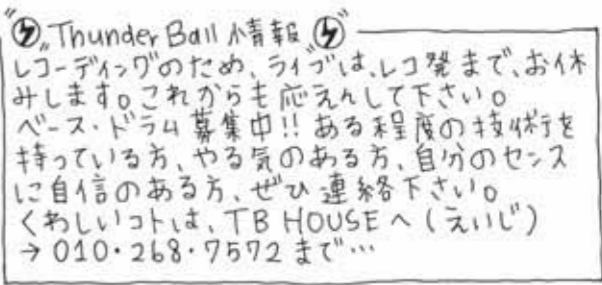 Thunder Ball 情報
レコーディングのため、ライブは、レコ発まで、お休
みします。これからも応えんして下さい。
ベース・ドラム募集中!! ある程度の技術を
持っている方、やる気のある方、自分のセンス
に自信のある方、ぜひ連絡下さい。
くわしいコトは、TB HOUSEへ(えいじ)
→ 010・268・7572まで…